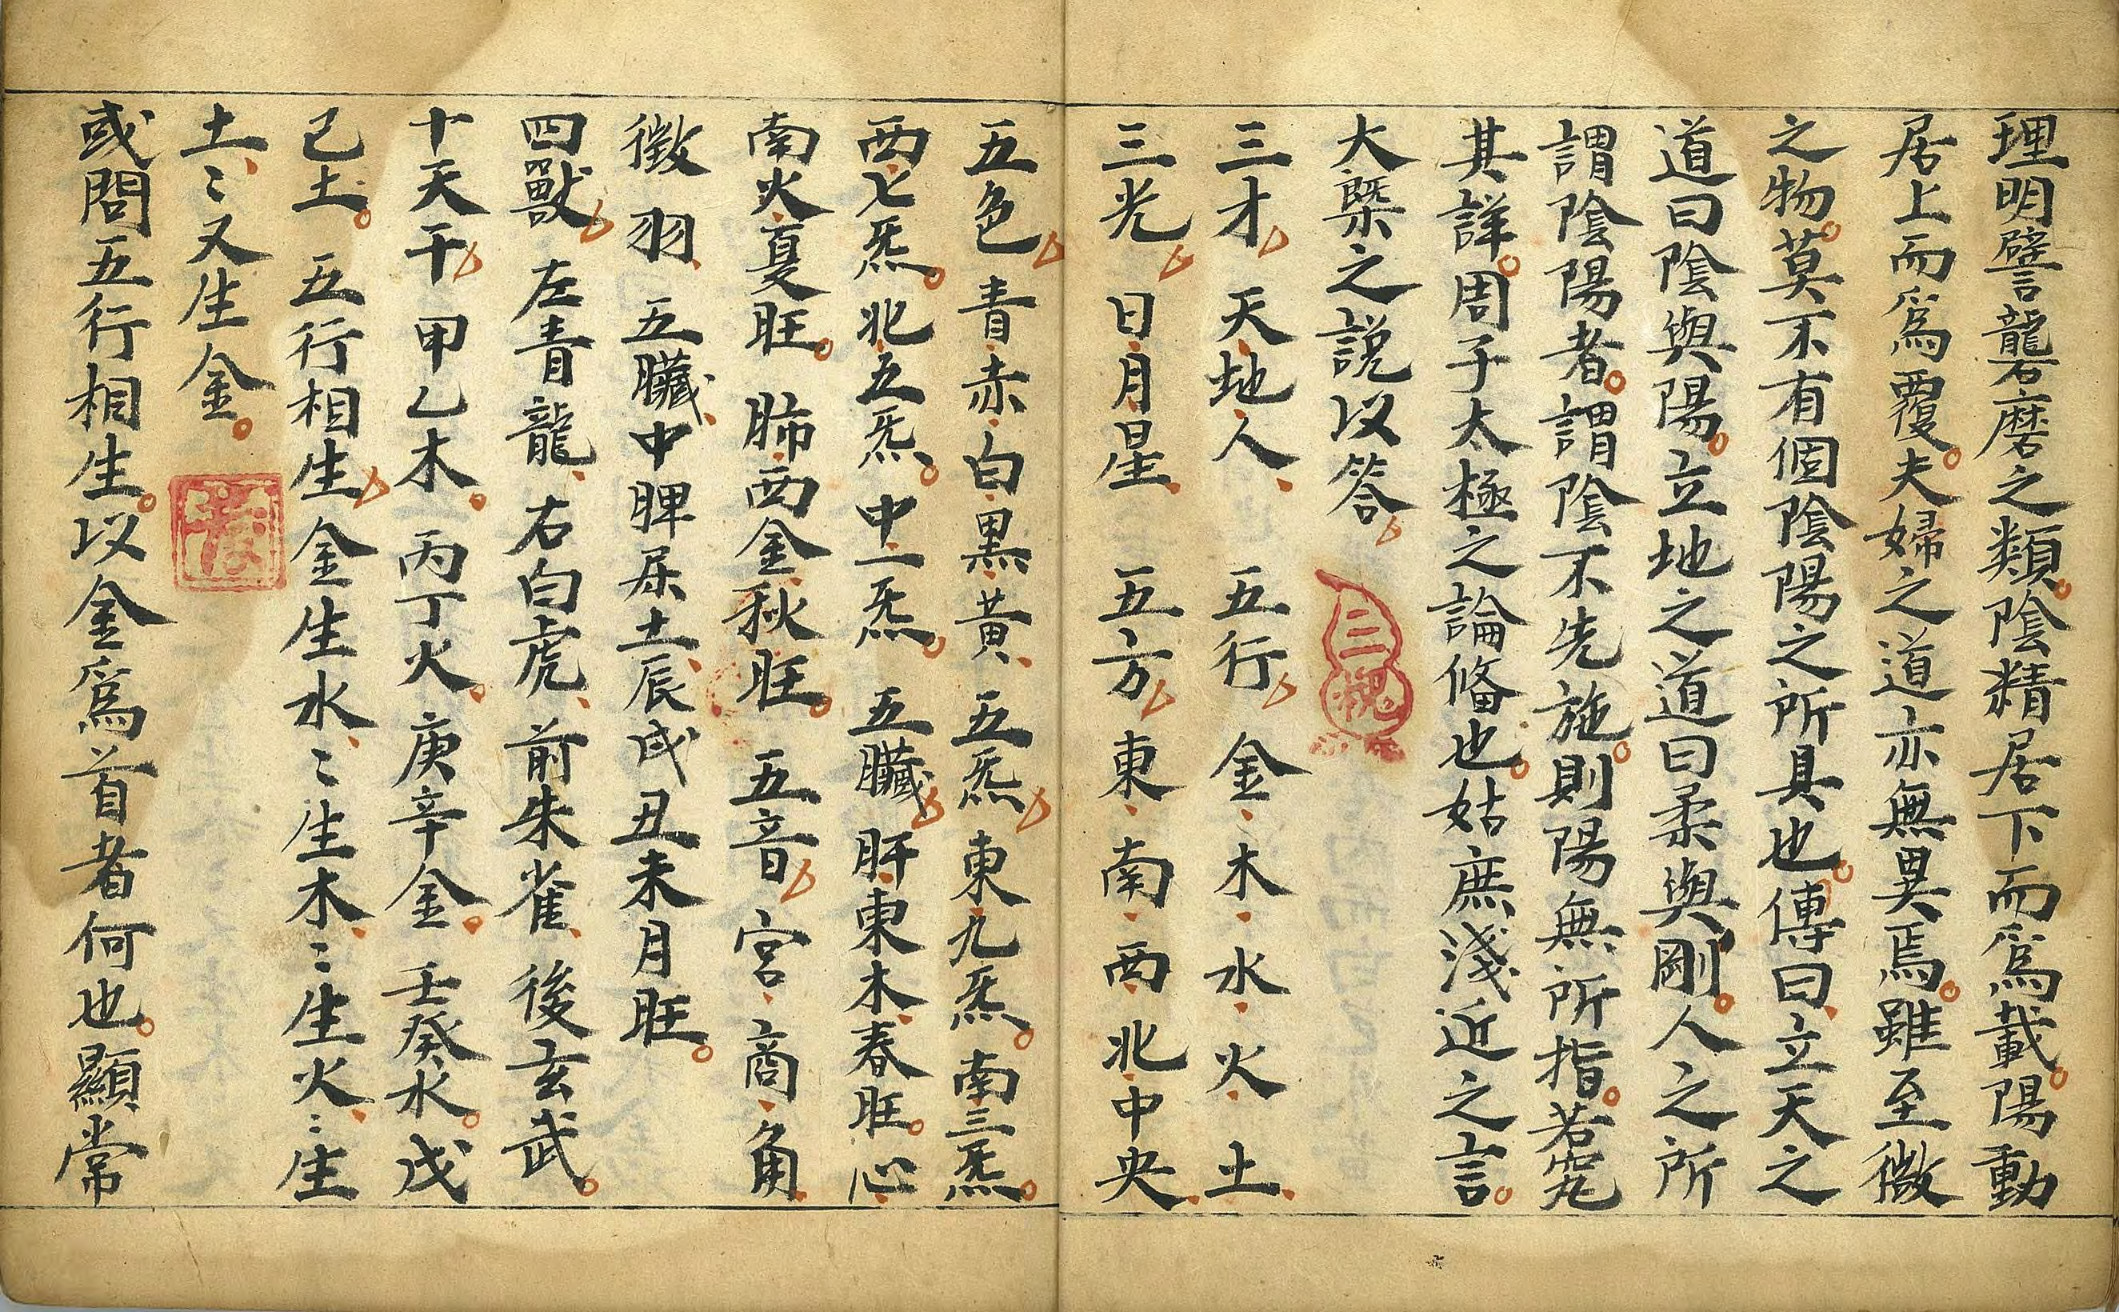 理明譬礱磨之類。陰精居下而爲載。陽動
居上而爲覆。夫婦之道亦無異焉。雖至微
之物。莫不有個陰陽之所具也。傳曰、立天之
道曰陰與陽。立地之道曰柔與剛。人之所
謂陰陽者。謂陰不先施。則陽無所指。若究
其詳。周子太極之論偹也。姑庶淺近之言。
大槩之說以答
三才 天、地、人、 五行 金、木、水、火、土、
三光 日、月、星、 五方 東、南、西、北、中央、
五色 青、赤、白、黒、黄、 五炁 東九炁。南三炁。
西七炁。北五炁。中一炁。 五臟 肝、東木、春旺。心、
南火、夏旺。 肺、西金、秋旺。 五音 宮、商、角、
徵 羽、 五臟、中脾屎土、辰戌丑未月旺。
四獸 左青龍、右白虎、前朱雀、後玄武。
十天干 甲乙木。丙丁火。庚辛金。壬癸水。戊
己土。 五行相生 金生水、〻生木、〻生火、〻生
土、〻又生金。
或問五行相生。以金爲首者何也。顯常
三